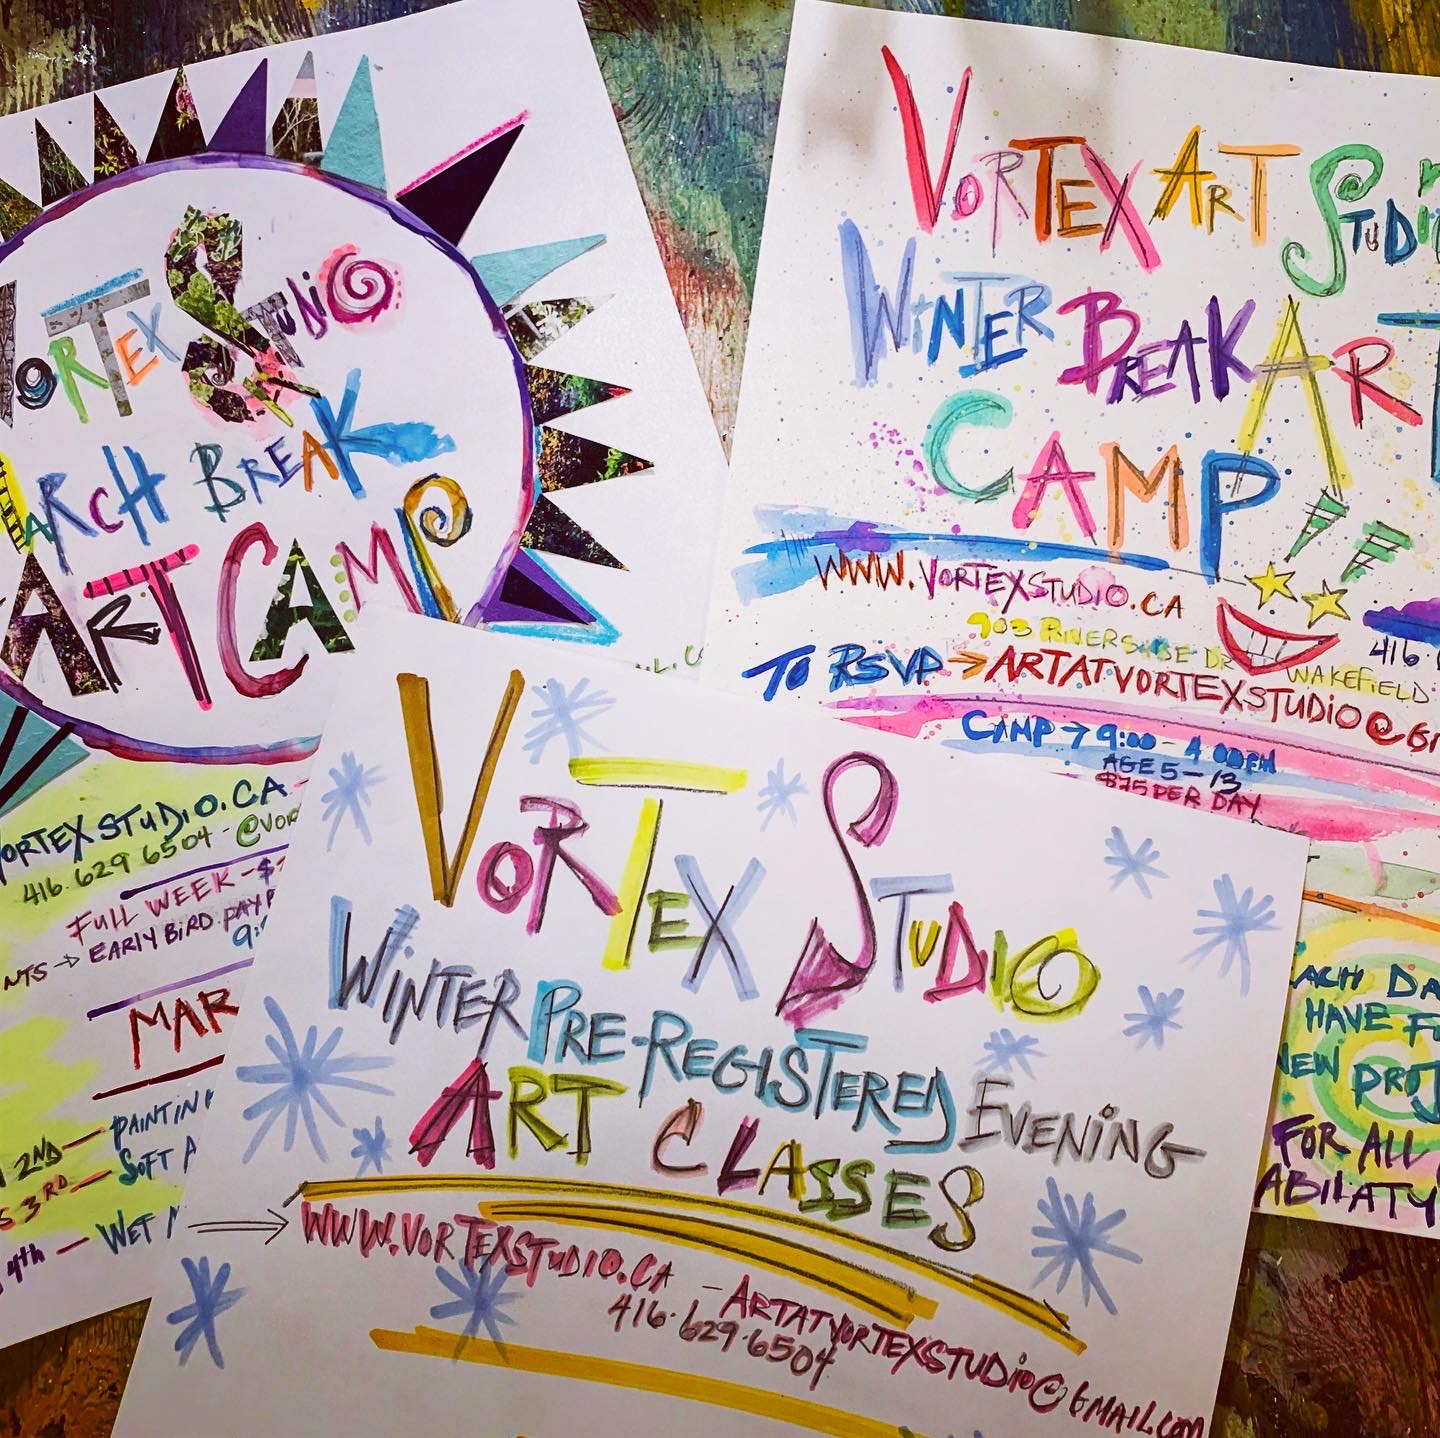 VORTEX STUDIO
MARCH BREAK
ART CAMP
VORTEXSTUDIO.CA
416.629 6504 - @VOR
FULL WEEK - $
NTS → EARLY BIRD PAY
9:
MAR
2ND — PAINTIN
3RD — SOFT
4th — WET
VORTEX ART STUDIO
WINTER BREAK ART
CAMP!!
WWW.VORTEXSTUDIO.CA
903 RIVERSIDE DR WAKEFIELD
416.
TO RSVP → ARTATVORTEXSTUDIO@GM
CAMP → 9:00 - 4:00PM
AGE 5 - 13
$75 PER DAY
EACH DA
HAVE F
NEW PROJ
FOR ALL
ABILATY
VORTEX STUDIO
WINTER PRE-REGISTERED EVENING
ART CLASSES
WWW.VORTEXSTUDIO.CA - ARTATVORTEXSTUDIO@GMAIL.COM
416.629.6504